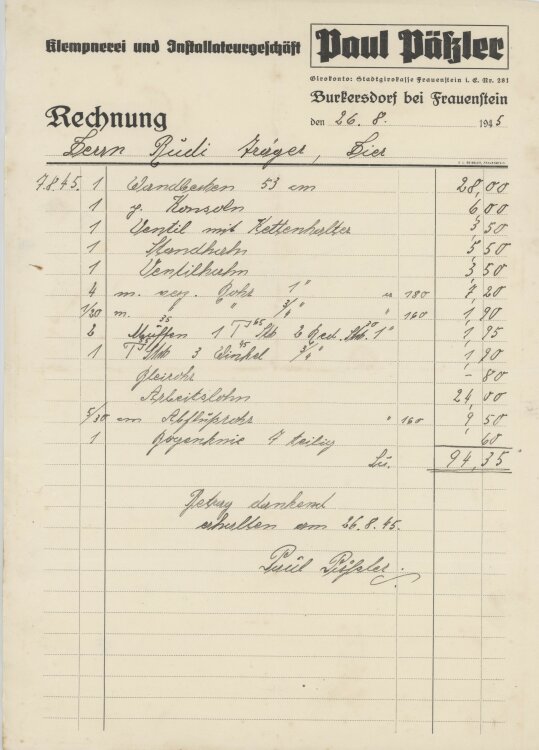 Klempnerei und Installateurgeschäft
Paul Päßler
Girokonto: Stadtgirokasse Frauenstein i. E. Nr. 281
Burkersdorf bei Frauenstein
Rechnung
den 26. 8. 1945
Herrn Rudi Träger, Hier
7.8.45. 1 Wandbecken 53 cm 28,00
1 p. Konsoln 6,00
1 Ventil mit Kettenhalter 3,50
1 Standhahn 5,50
1 Ventilhahn 3,50
4 m. verz. Rohr 1" a 180 7,20
1/20 m. " " 3/4" " 160 1,90
2 Muffen 1 T Stk 2 Red. Stk. 1" 1,95
1 T Stk 3 Winkel 3/4" 1,90
Bleirohr – 80
Arbeitslohn 24,00
5/30 cm Abflußrohr " 160 9,50
1 Bogenknie 7 teilig 60
Su. 94,35
Betrag dankend
erhalten am 26.8.45.
Paul Päßler.